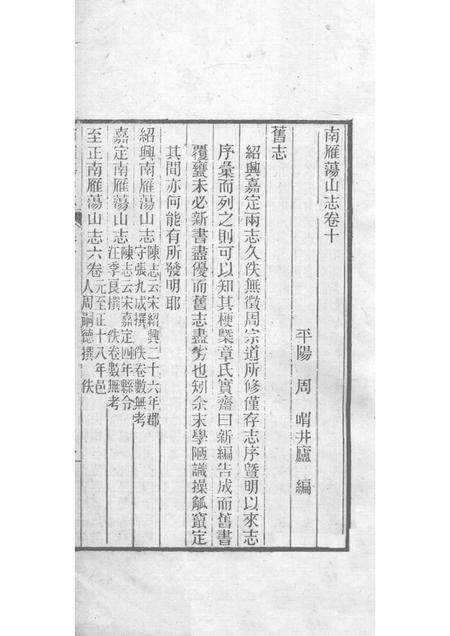 南雁蕩山志卷十
平陽 周 喟井廬 編
舊志
紹興嘉定兩志久佚無徵周宗道所修僅存志序曁明以來志
序彙而列之則可以知其梗槩章氏實齋曰新編告成而舊書
覆甕未必新書盡優而舊志盡劣也矧余末學陋識操觚竄定
其間亦何能有所發明耶
紹興南雁蕩山志陳志云宋紹興二十六年郡
守張九成撰 佚卷數無考
嘉定南雁蕩山志陳志云宋嘉定四年縣令
汪季良撰 佚卷數無考
至正南雁蕩山志六卷元至正十八年邑
人周嗣德撰 佚